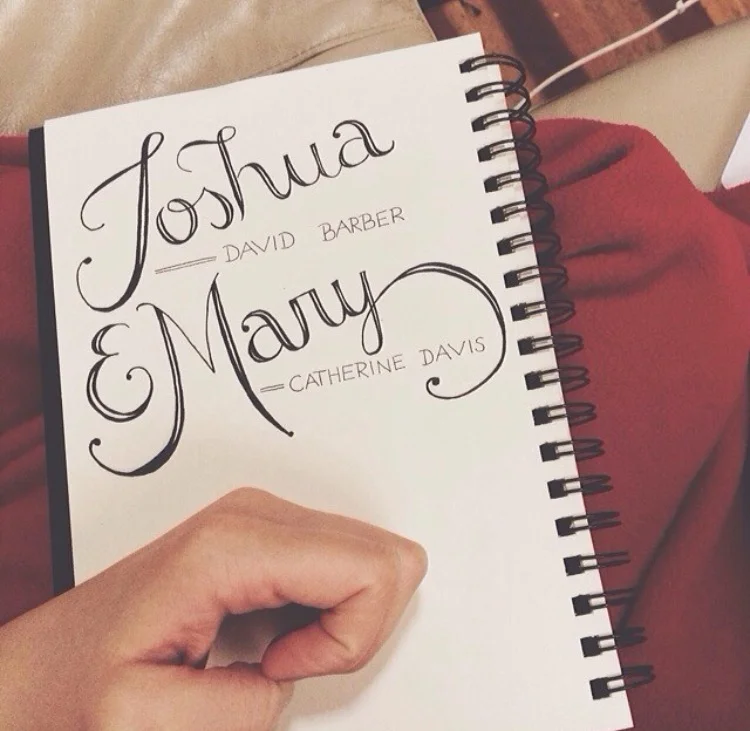 Joshua
DAVID BARBER
& Mary
CATHERINE DAVIS